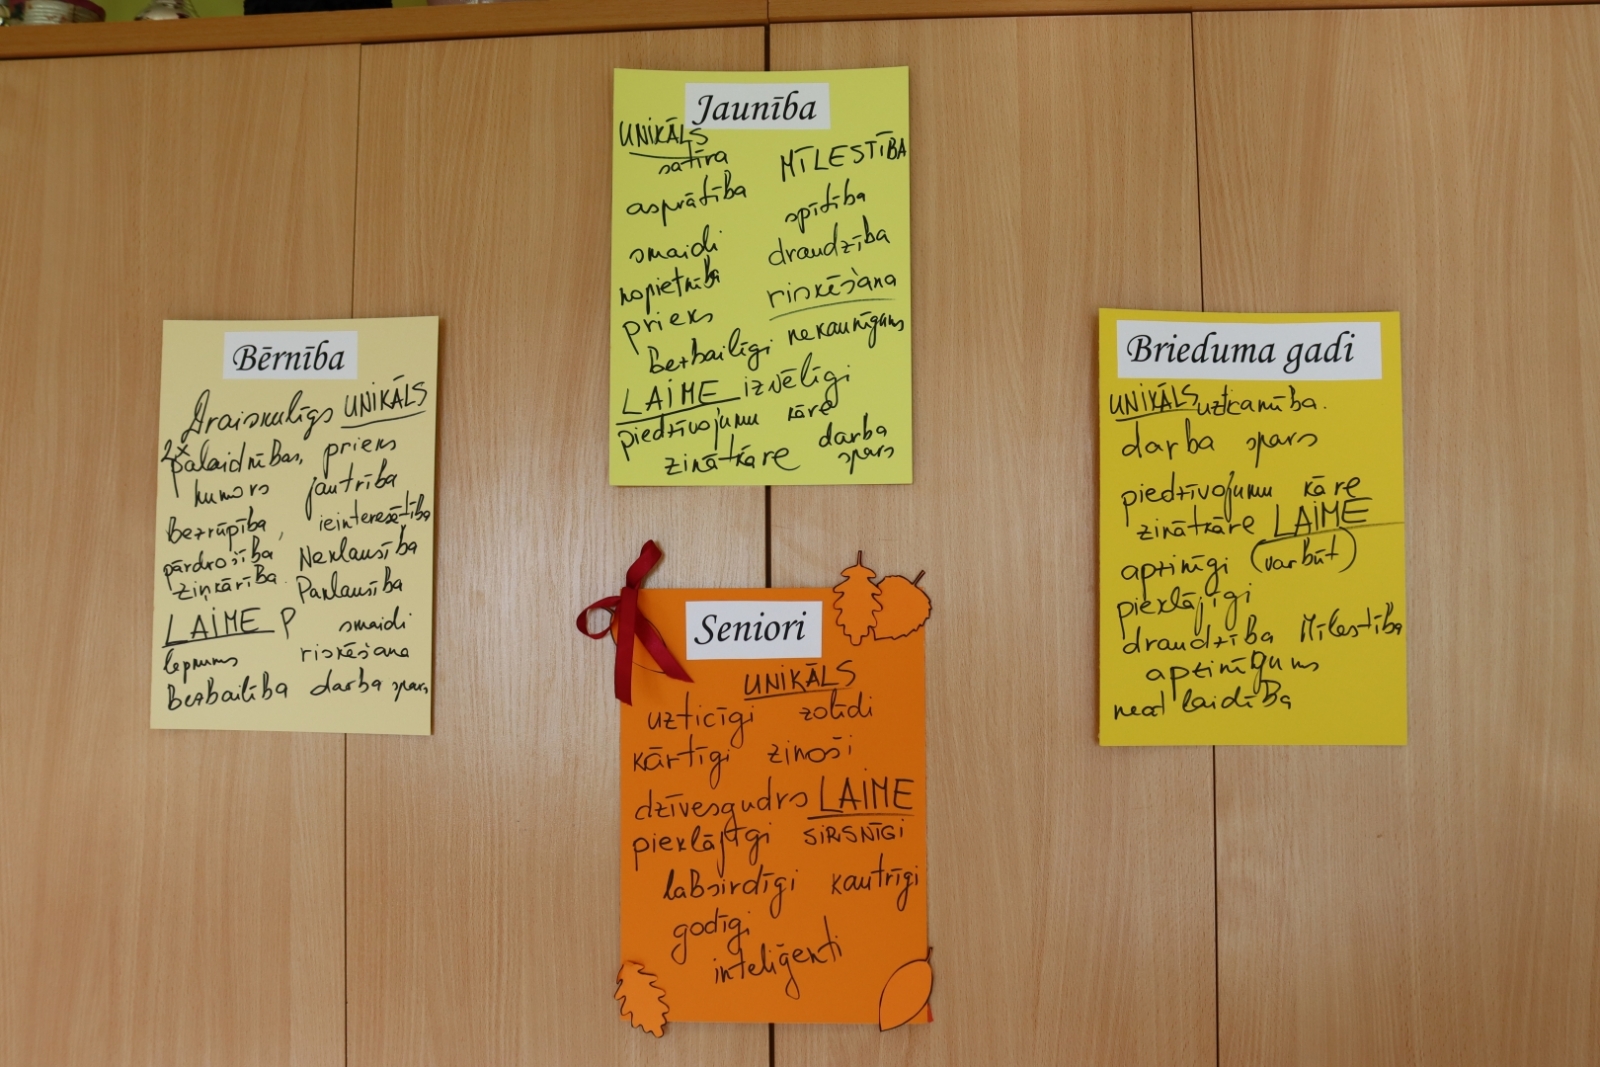 Jaunība
UNIKĀLS
satīra MĪLESTĪBA
asprātība spītība
smaidi draudzība
nopietnība riskēšana
prieks nekaunīgums
bezbailīgi
LAIME izvēlīgi
piedzīvojumu kāre
zinātkāre darba
spars
Bērnība
Draiskulīgs UNIKĀLS
2x
palaidnības, prieks
humors jautrība
bezrūpība, ieinteresētība
pārdrošība Neklausība
ziņkārība. Paklausība
LAIME P smaidi
lepnums riskēšana
Bezbailība darba spars
Brieduma gadi
UNIKĀLS uzkanība.
darba spars
piedzīvojumu kāre
zinātkāre LAIME
apzinīgi (varbūt)
pieklājīgi
draudzība Mīlestība
apzinīgums
neatlaidība
Seniori
UNIKĀLS
uzticīgi zolīdi
kārtīgi zinoši
dzīvesgudrs LAIME
pieklājīgi SIRSNĪGI
labsirdīgi kautrīgi
godīgi
inteliģenti